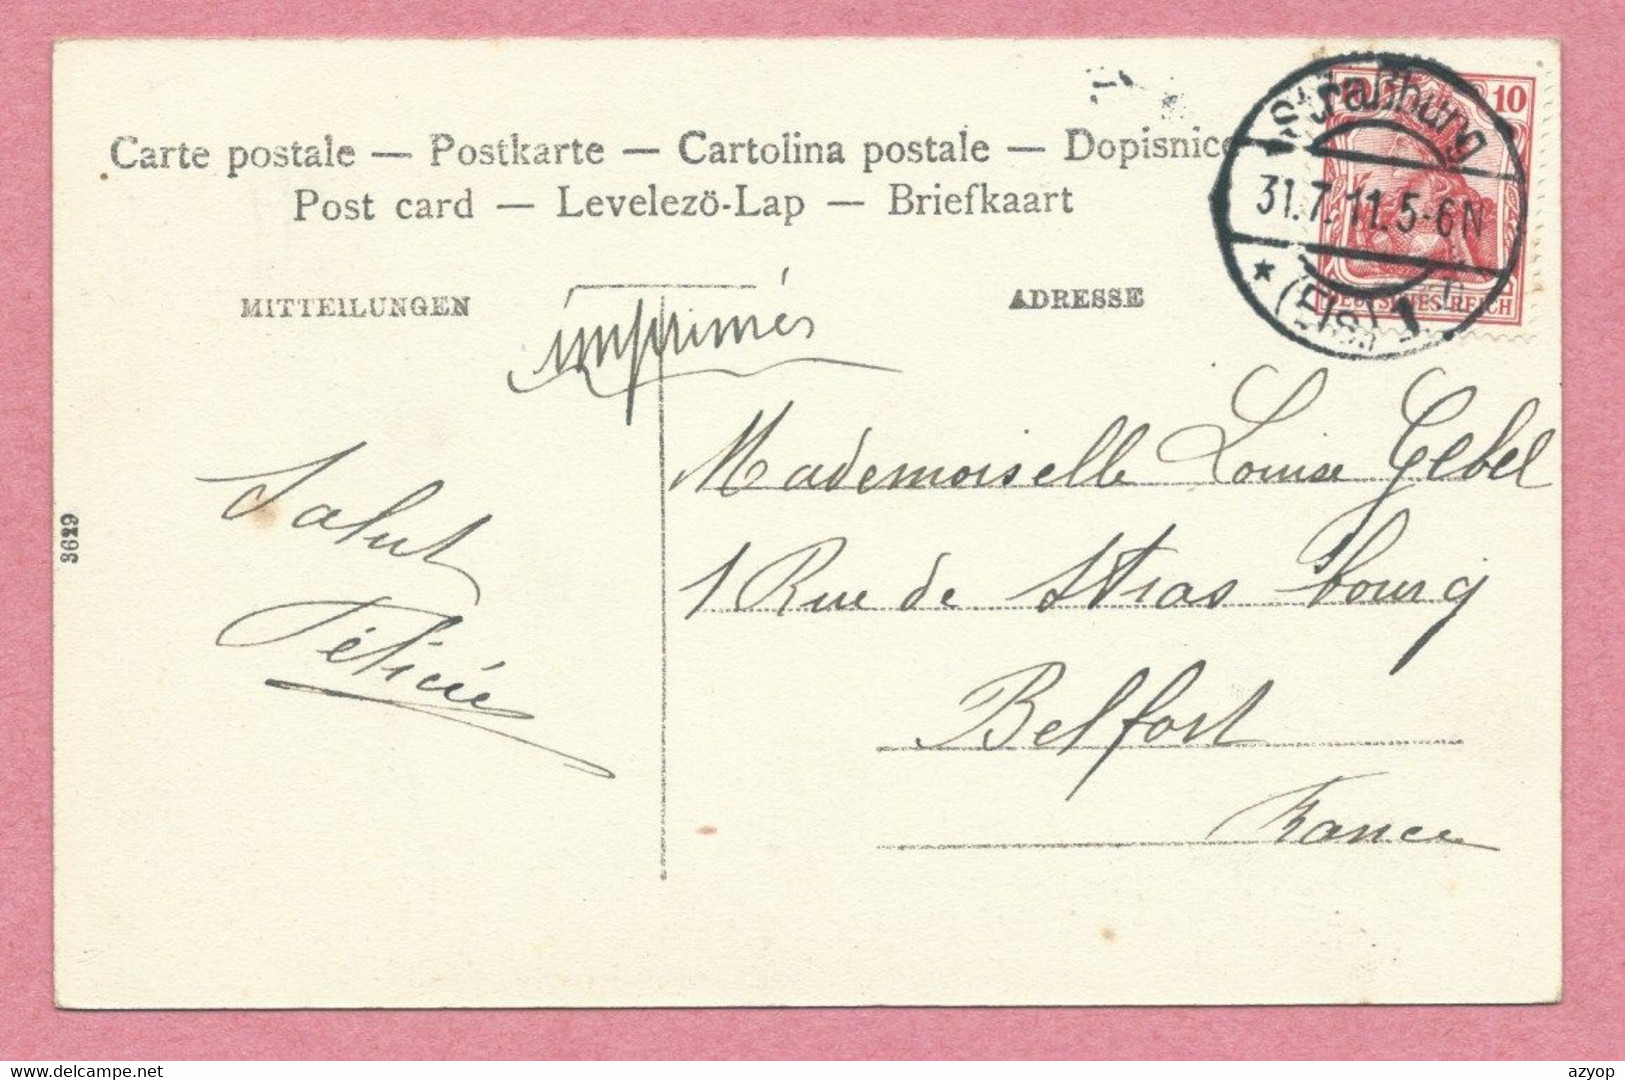 Carte postale — Postkarte — Cartolina postale — Dopisnice
Post card — Levelezö-Lap — Briefkaart
Straßburg
31.7.11.5-6N
* (Els.) 1
10
DEUTSCHES REICH
MITTEILUNGEN
ADRESSE
imprimés
Salut
Félicie
Mademoiselle Louise Gebel
1 Rue de Strasbourg
Belfort
France
3629
www.delcampe.net
azyop